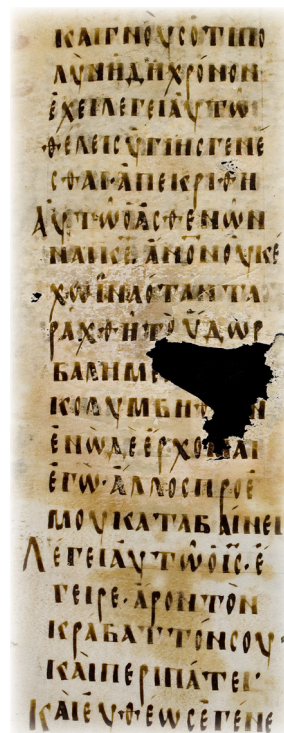 ΚΑΙΓΝΟΥСΟΤΙΠΟ
ΛΥΝΗΔΗΧΡΟΝΟΝ
ΕΧΕΙΛΕΓΕΙΑΥΤΩ
ΘΕΛΕΙСΥΓΙΗСΓΕΝΕ
СΘΑΙΑΠΕΚΡΙΘΗ
ΑΥΤΩΟΑСΘΕΝΩΝ
ΝΑΙΚ̅Ε̅ΑΝΟΝΟΥΚΕ
ΧΩΙΝΑΟΤΑΝΤΑ
ΡΑΧΘΗΤΟΥΔΩΡ
ΒΑΛΗΜ
ΚΟΛΥΜΒΗ Ν
ΕΝΩΔΕΕΡΧΟΜΑΙ
ΕΓΩ·ΑΛΛΟСΠΡΟΕ
ΜΟΥΚΑΤΑΒΑΙΝΕΙ
ΛΕΓΕΙΑΥΤΩΟΙ̅С̅·Ε
ΓΕΙΡΕ·ΑΡΟΝΤΟΝ
ΚΡΑΒΑΤΤΟΝСΟΥ·
ΚΑΙΠΕΡΙΠΑΤΕΙ·
ΚΑΙΕΥΘΕΩСΕΓΕΝΕ